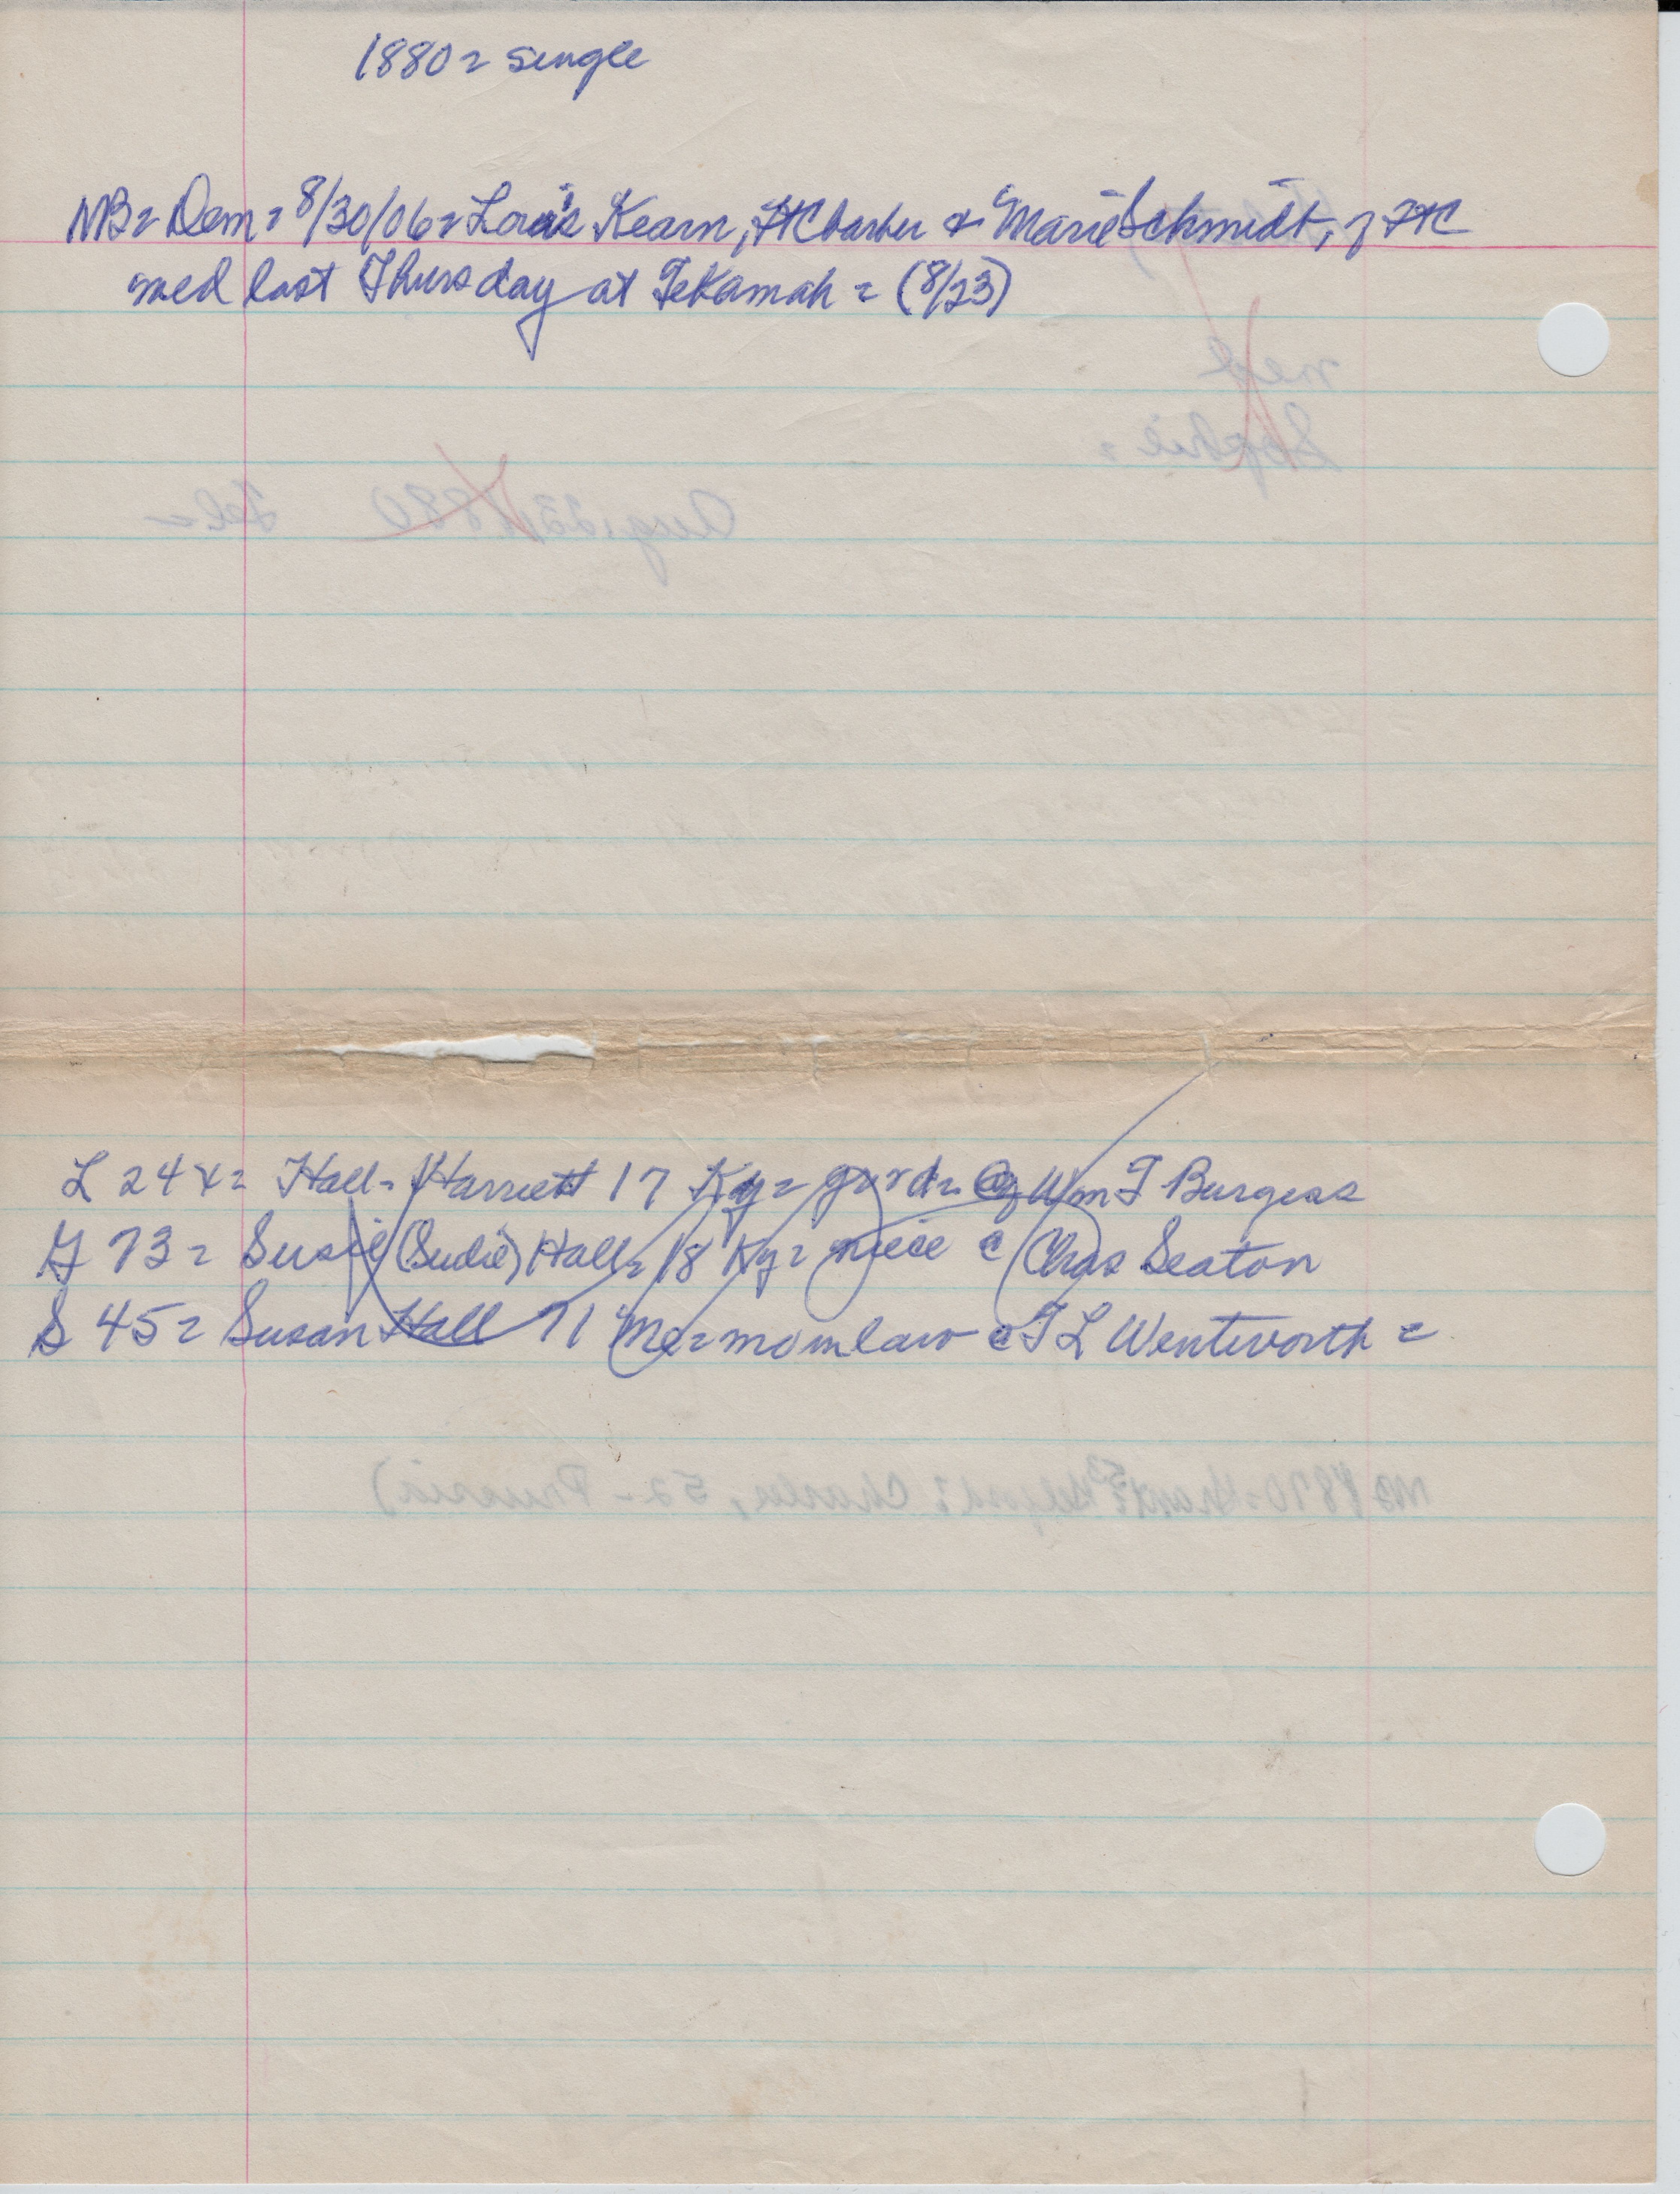 1880 = single
NB = Dem = 8/30/06 = Louis Kearn, FtC barber & Marie Schmidt, of FtC
med last Thursday at Tekamah = (8/23)
L 244 = Hall - Harriett 17 Ky = = Wm T Burgess
G 73 = Susie (Sudie) Hall = 18 Ky = niece c Chas Seaton
S 45 = Susan Hall 71 Me = mominlaw c T L Wentworth =